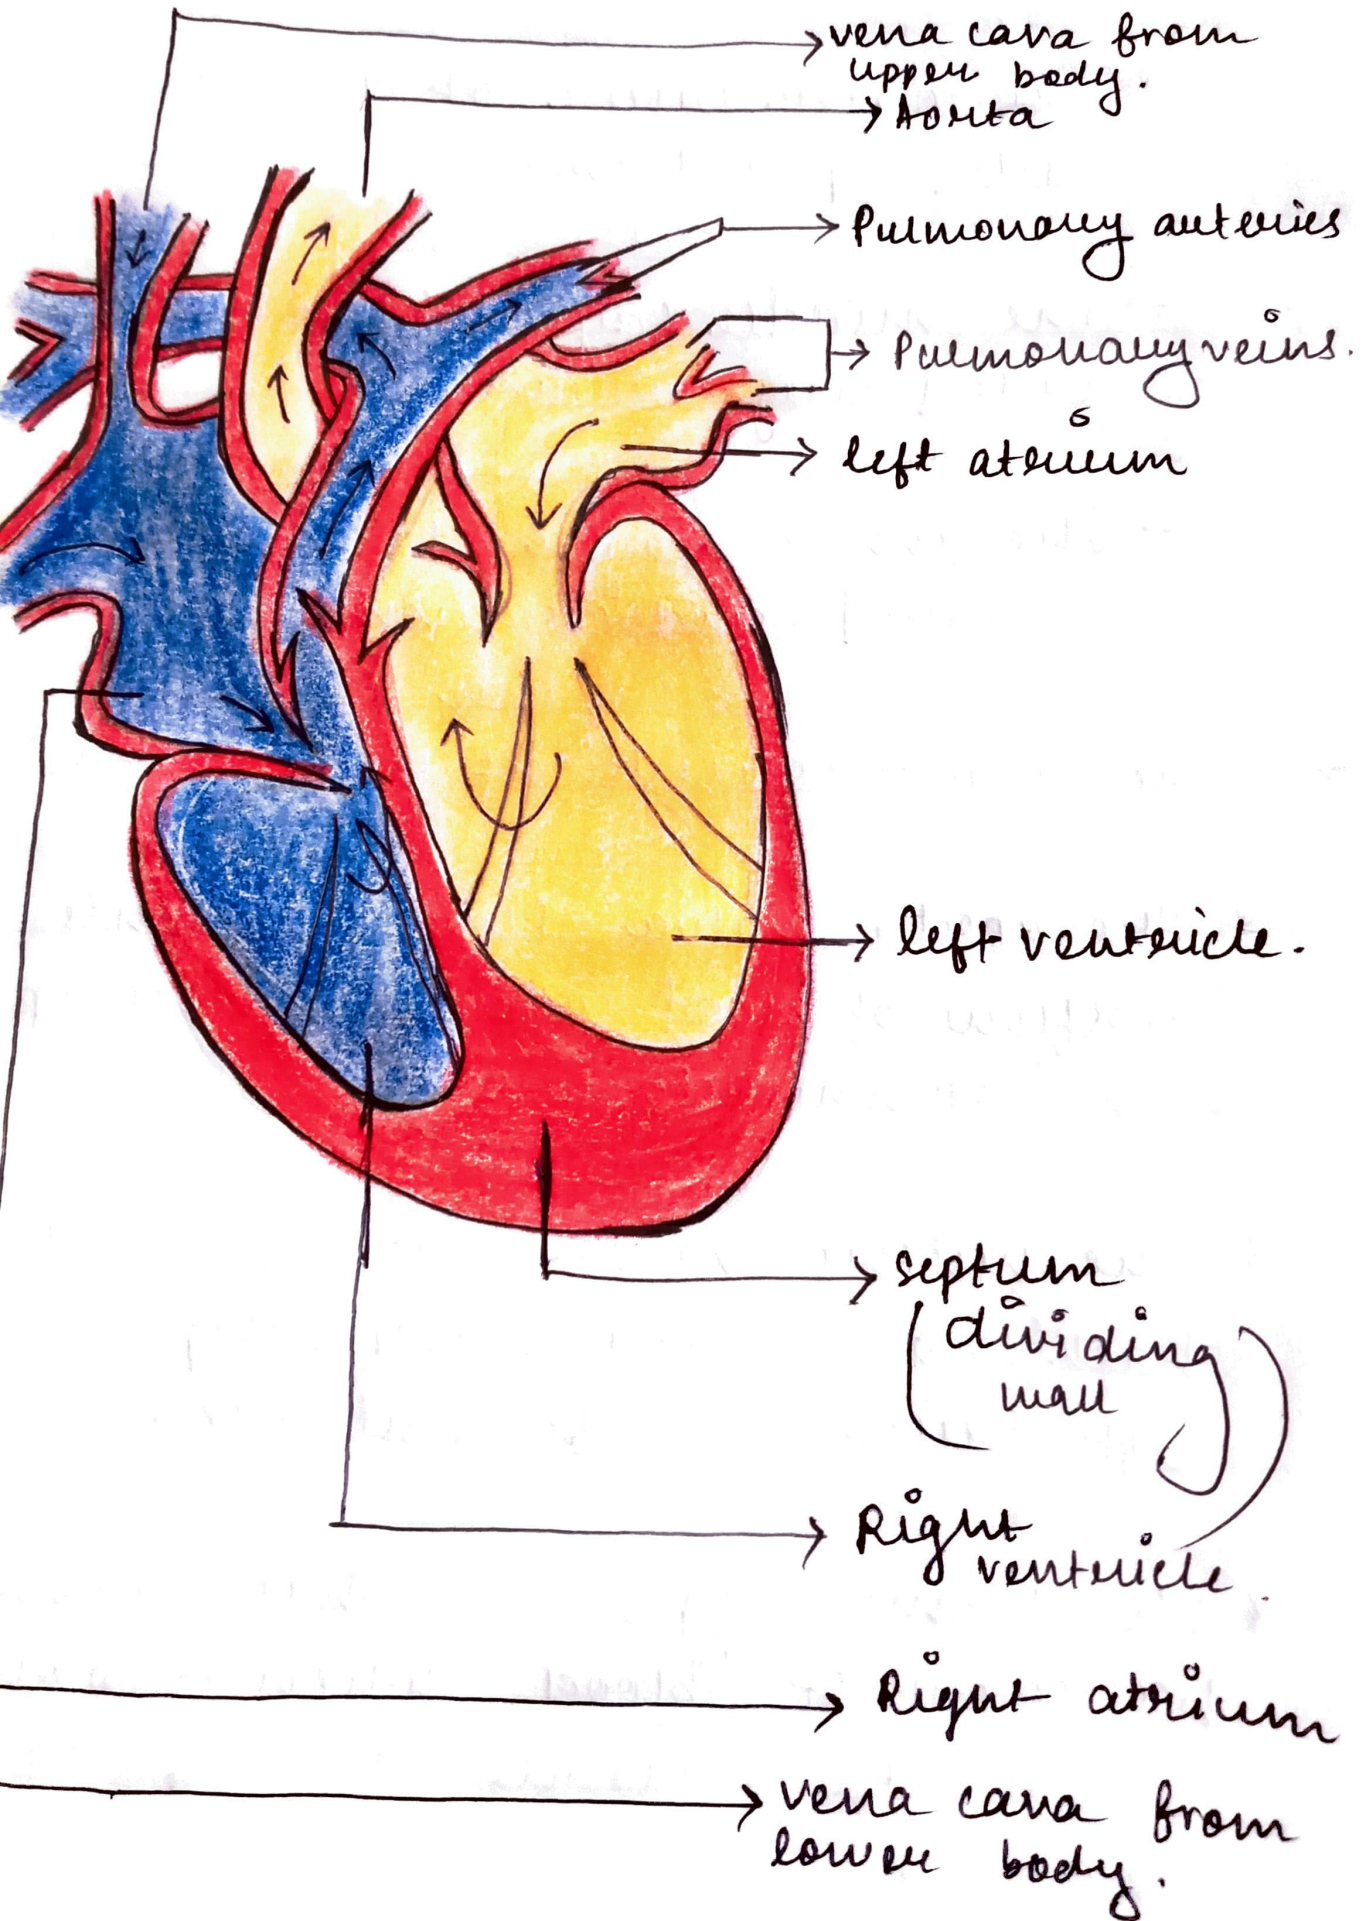 vena cava from
upper body.
Aorta
Pulmonary arteries
Pulmonary veins.
left atrium
left ventricle.
septum
(dividing
wall)
Right
ventricle.
Right atrium
vena cava from
lower body.